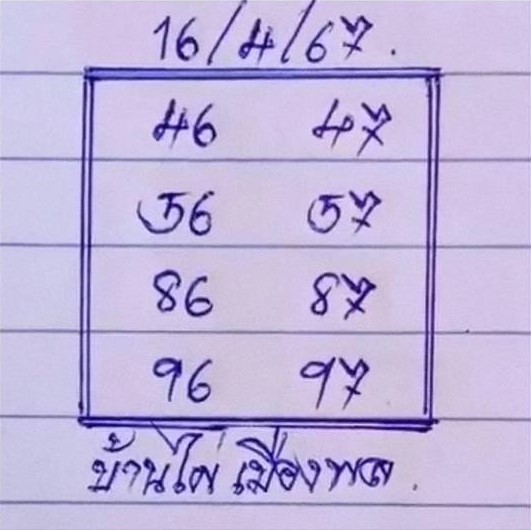 16/4/67.
46 47
56 57
86 87
96 97
บ้านไผ่ เมืองพล.